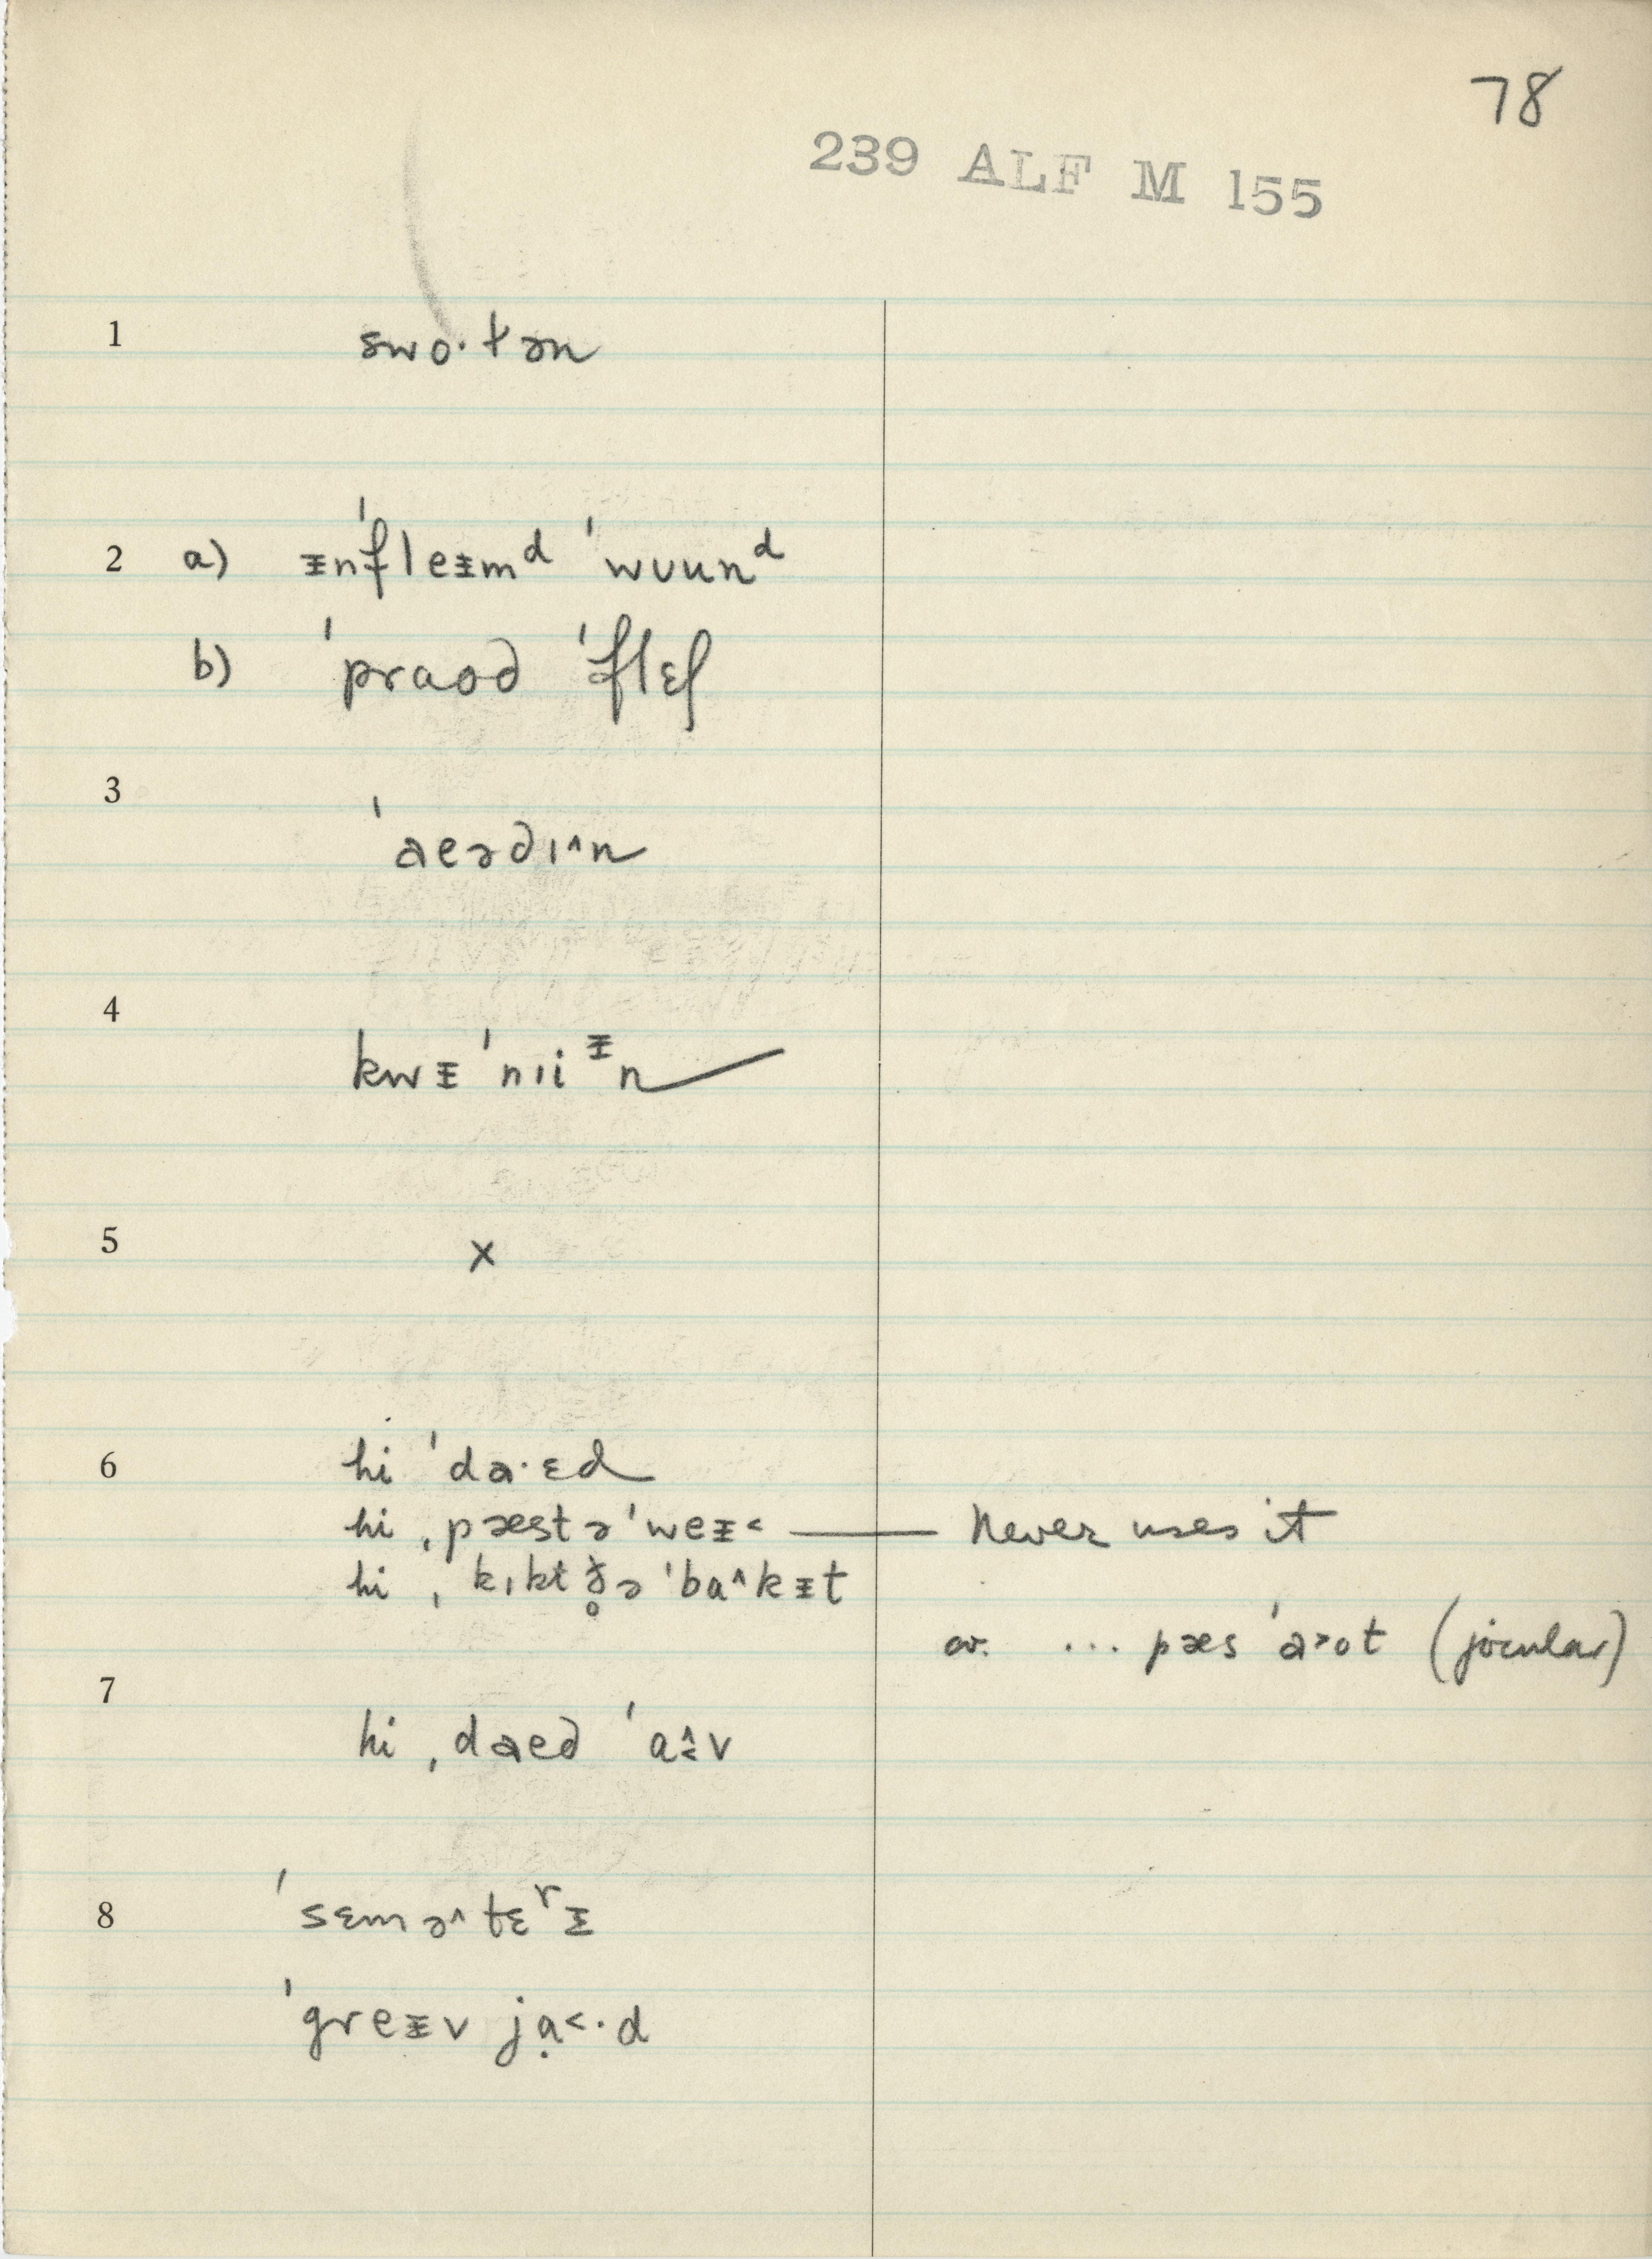 78
239 ALF M 155
1 swo·tən
2 a) ᵻnˈfleᵻmᵈ ˈwʊunᵈ
b) ˈpraod ˈflɛʃ
3 ˈaeədɪ^n
4 kwᵻˈnɪiᵻn
5 x
6 hi ˈda·ɛd
hi ˌpæst əˈweᵻ< — Never uses it
hi ˌkɪkt ð̥ə ˈba^kᵻt
or. ... pæs ˈa>ot (jocular)
7 hi ˌdaed ˈa^<v
8 ˈsɛmə^tɛʳᵻ
ˈgreᵻv jạ<·d